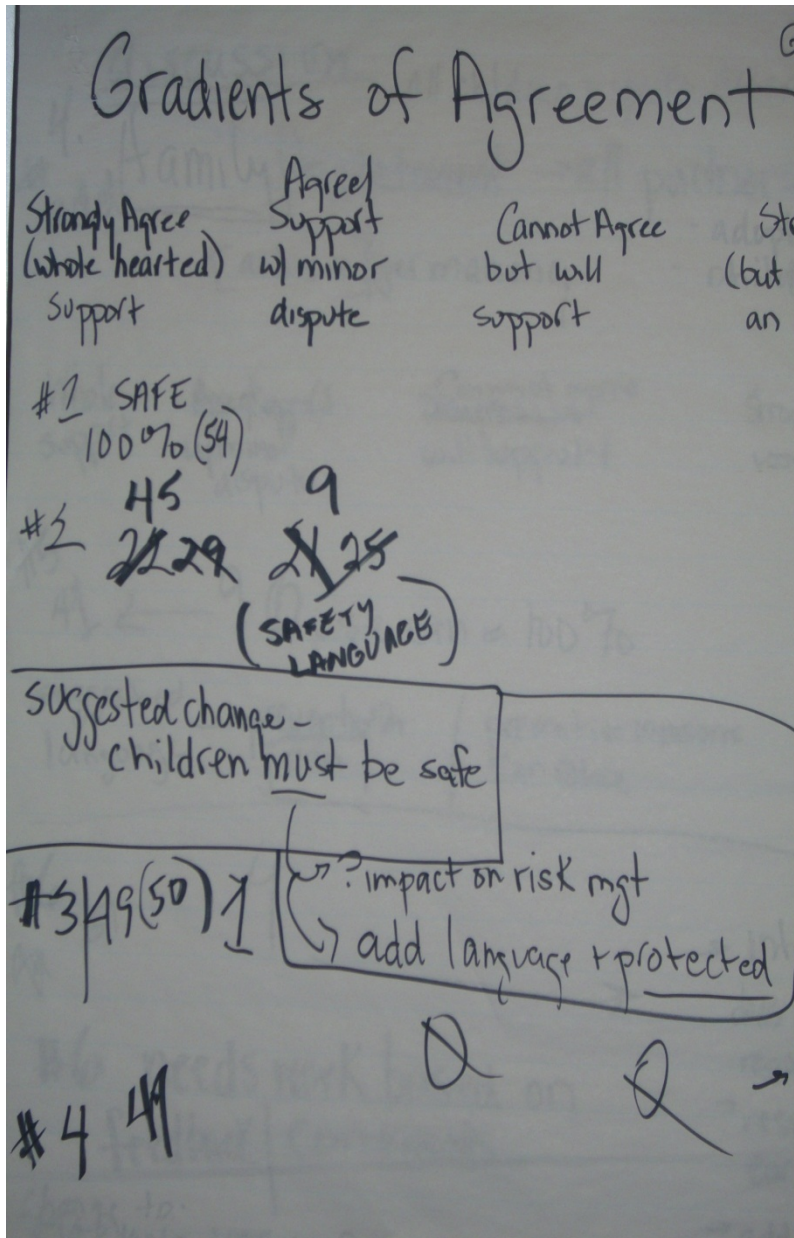 Gradients of Agreement
Strongly Agree
(whole hearted)
support
Agree/
Support
w/ minor
dispute
Cannot Agree
but will
support
(but
an
#1 SAFE
100% (54)
45 9
#2 22 29 21 25
(SAFETY
LANGUAGE)
suggested change -
children must be safe
? impact on risk mgt
add language + protected
#3 49 (50) 1
#4